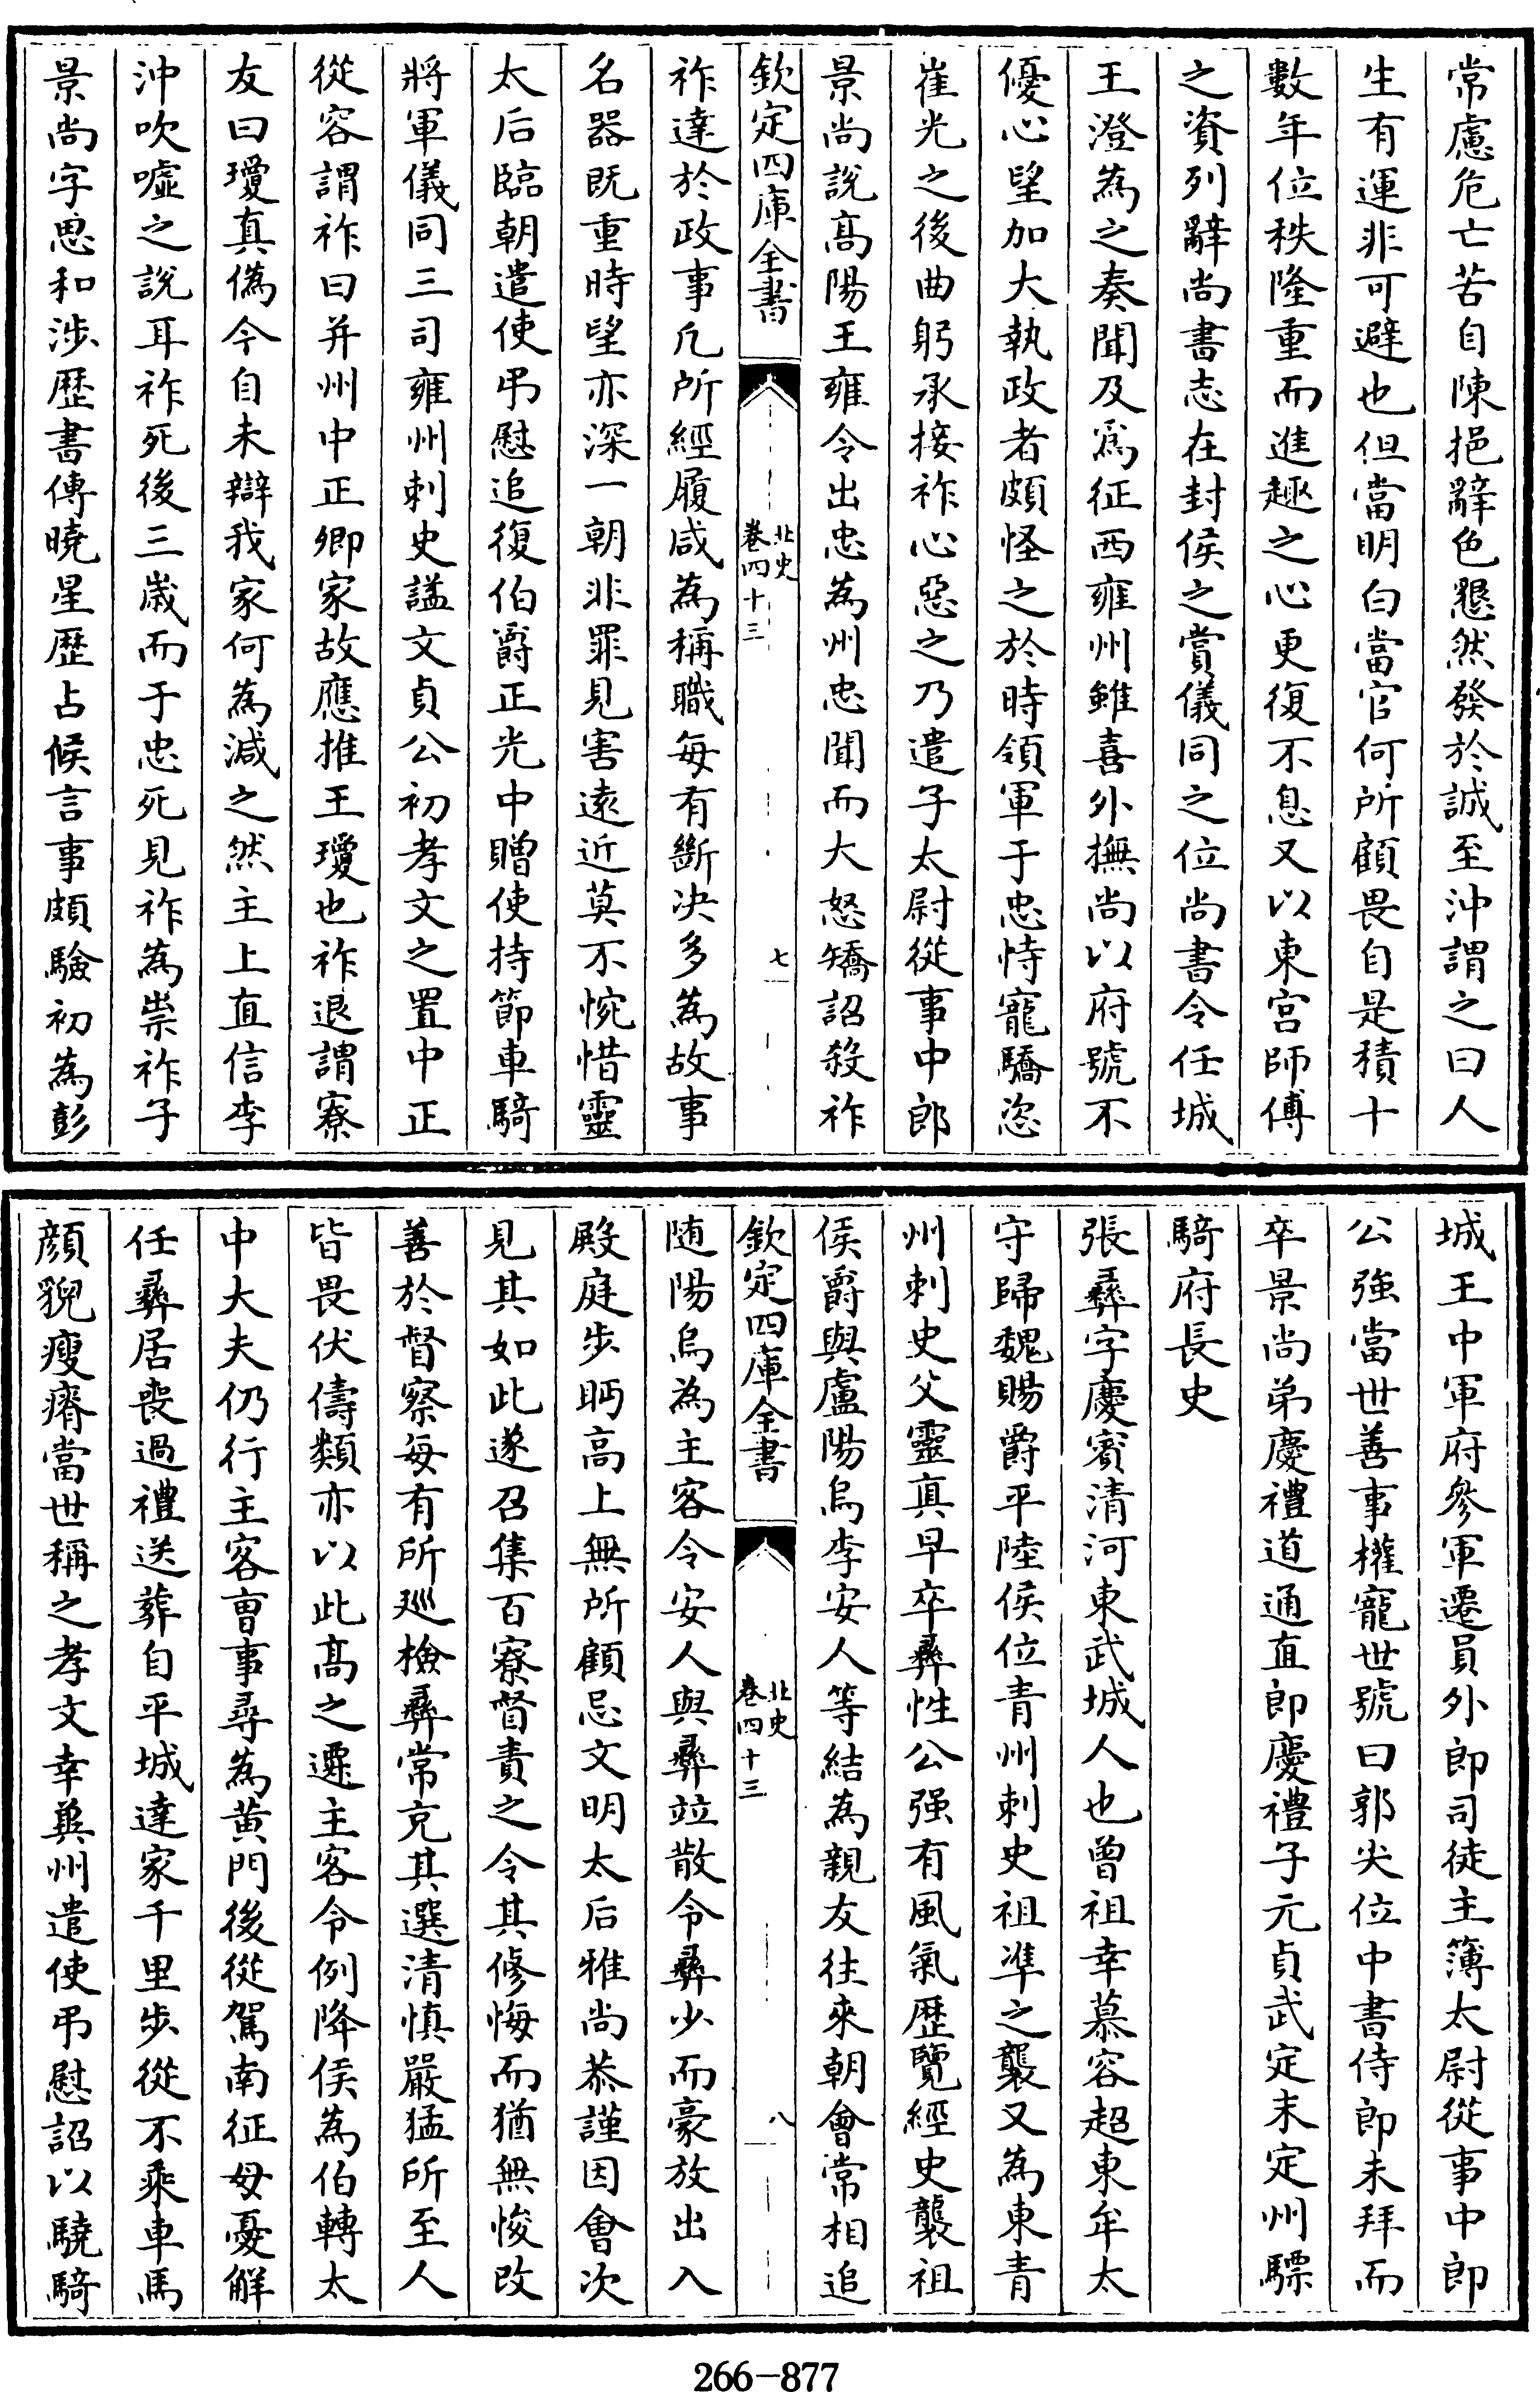 常慮危亡苦自陳挹辭色懇然發於誠至沖謂之曰人
生有運非可避也但當明白當官何所顧畏自是積十
數年位秩隆重而進趣之心更復不息又以東宮師傅
之資列辭尚書志在封侯之賞儀同之位尚書令任城
王澄為之奏聞及爲征西雍州雖喜外撫尚以府號不
優心望加大執政者頗怪之於時領軍于忠恃寵驕恣
崔光之後曲躬承接祚心惡之乃遣子太尉從事中郎
景尚說高陽王雍令出忠為州忠聞而大怒矯詔殺祚
欽定四庫全書 北史 卷四十三 七
祚達於政事凡所經履咸為稱職每有斷決多為故事
名器既重時望亦深一朝非罪見害遠近莫不惋惜靈
太后臨朝遣使弔慰追復伯爵正光中贈使持節車騎
將軍儀同三司雍州刺史諡文貞公初孝文之置中正
從容謂祚曰并州中正卿家故應推王瓊也祚退謂寮
友曰瓊真偽今自未辯我家何為減之然主上直信李
沖吹噓之說耳祚死後三歲而于忠死見祚為祟祚子
景尚字思和涉歷書傳曉星歷占候言事頗驗初為彭
城王中軍府參軍遷員外郎司徒主簿太尉從事中郎
公強當世善事權寵世號曰郭尖位中書侍郎未拜而
卒景尚弟慶禮道通直郎慶禮子元貞武定末定州驃
騎府長史
張彝字慶賓清河東武城人也曾祖幸慕容超東牟太
守歸魏賜爵平陸侯位青州刺史祖準之襲又為東青
州刺史父靈真早卒彝性公强有風氣歷覽經史襲祖
侯爵與盧陽烏李安人等結為親友往來朝會常相追
欽定四庫全書 北史 卷四十三 八
随陽烏為主客令安人與彝竝散令彝少而豪放出入
殿庭步眄高上無所顧忌文明太后雅尚恭謹因會次
見其如此遂召集百寮督責之令其修悔而猶無悛改
善於督察每有所巡檢彝常充其選清慎嚴猛所至人
皆畏伏儔類亦以此高之遷主客令例降侯為伯轉太
中大夫仍行主客曹事尋為黄門後從駕南征母憂解
任彝居喪過禮送葬自平城達家千里步從不乘車馬
顔貌瘦瘠當世稱之孝文幸冀州遣使弔慰詔以驍騎
266-877